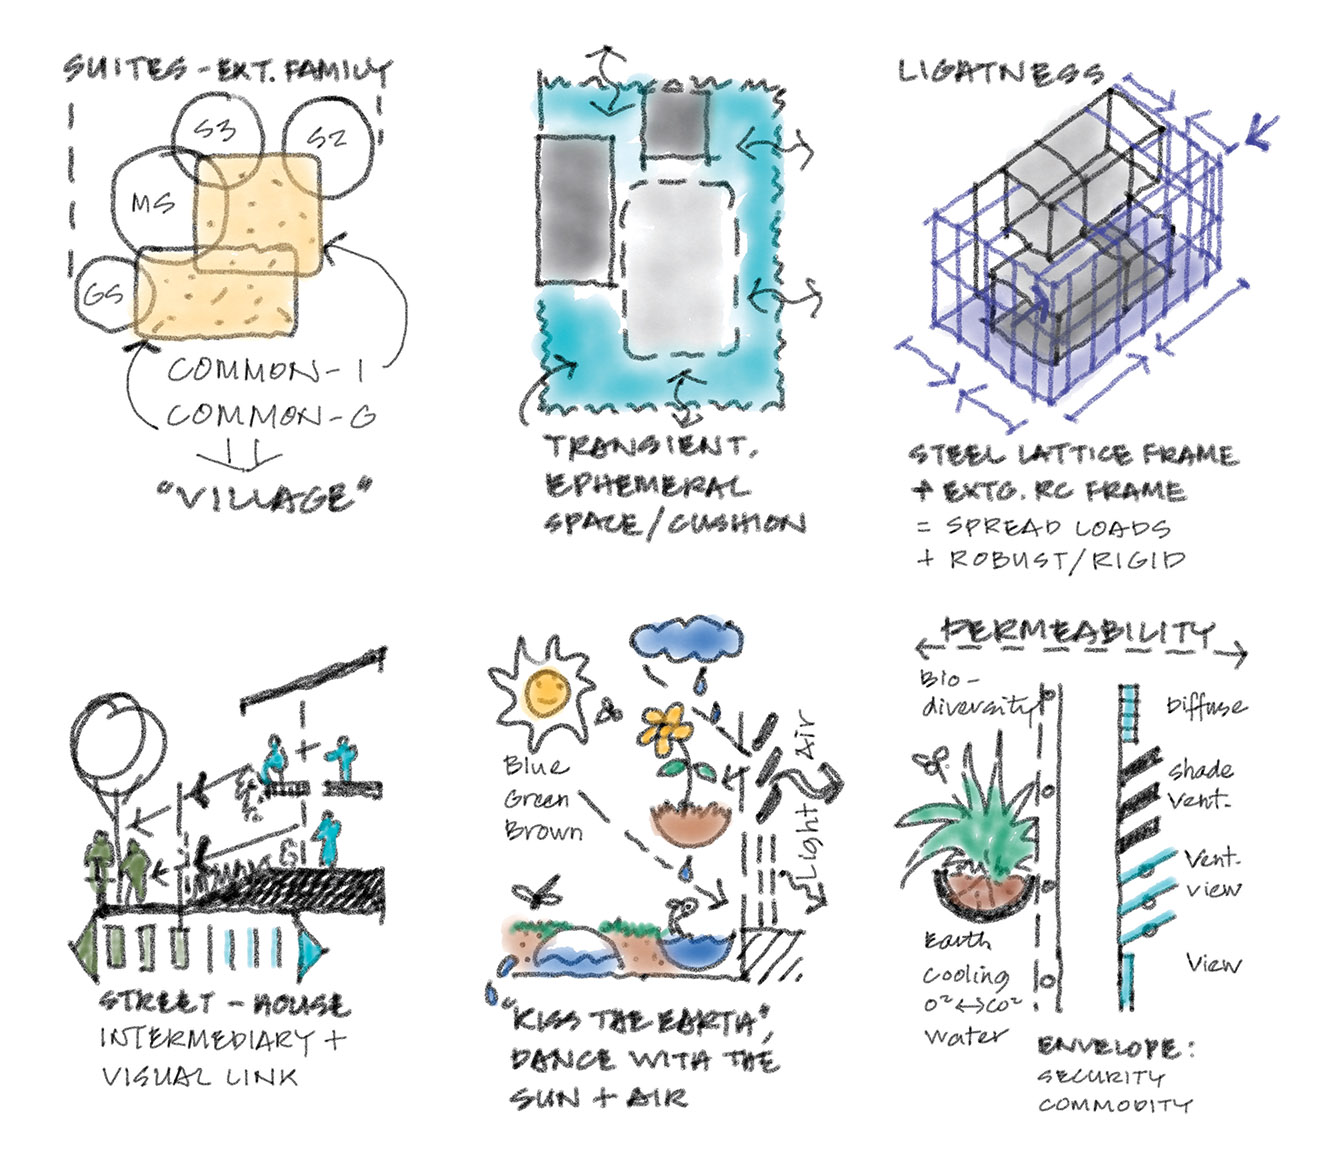 SUITES - EXT. FAMILY
S3
S2
MS
GS
COMMON - 1
COMMON - G
"VILLAGE"
TRANSIENT,
EPHEMERAL
SPACE/CUSHION
LIGHTNESS
STEEL LATTICE FRAME
+ EXTG. RC FRAME
= SPREAD LOADS
+ ROBUST/RIGID
STREET - HOUSE
INTERMEDIARY +
VISUAL LINK
Blue
Green
Brown
Air
Light
"KISS THE EARTH",
DANCE WITH THE
SUN + AIR
PERMEABILITY
Bio-
diversity
Diffuse
Shade
Vent.
Vent-
view
View
Earth
Cooling
O² <-> CO²
Water
ENVELOPE:
SECURITY
COMMODITY